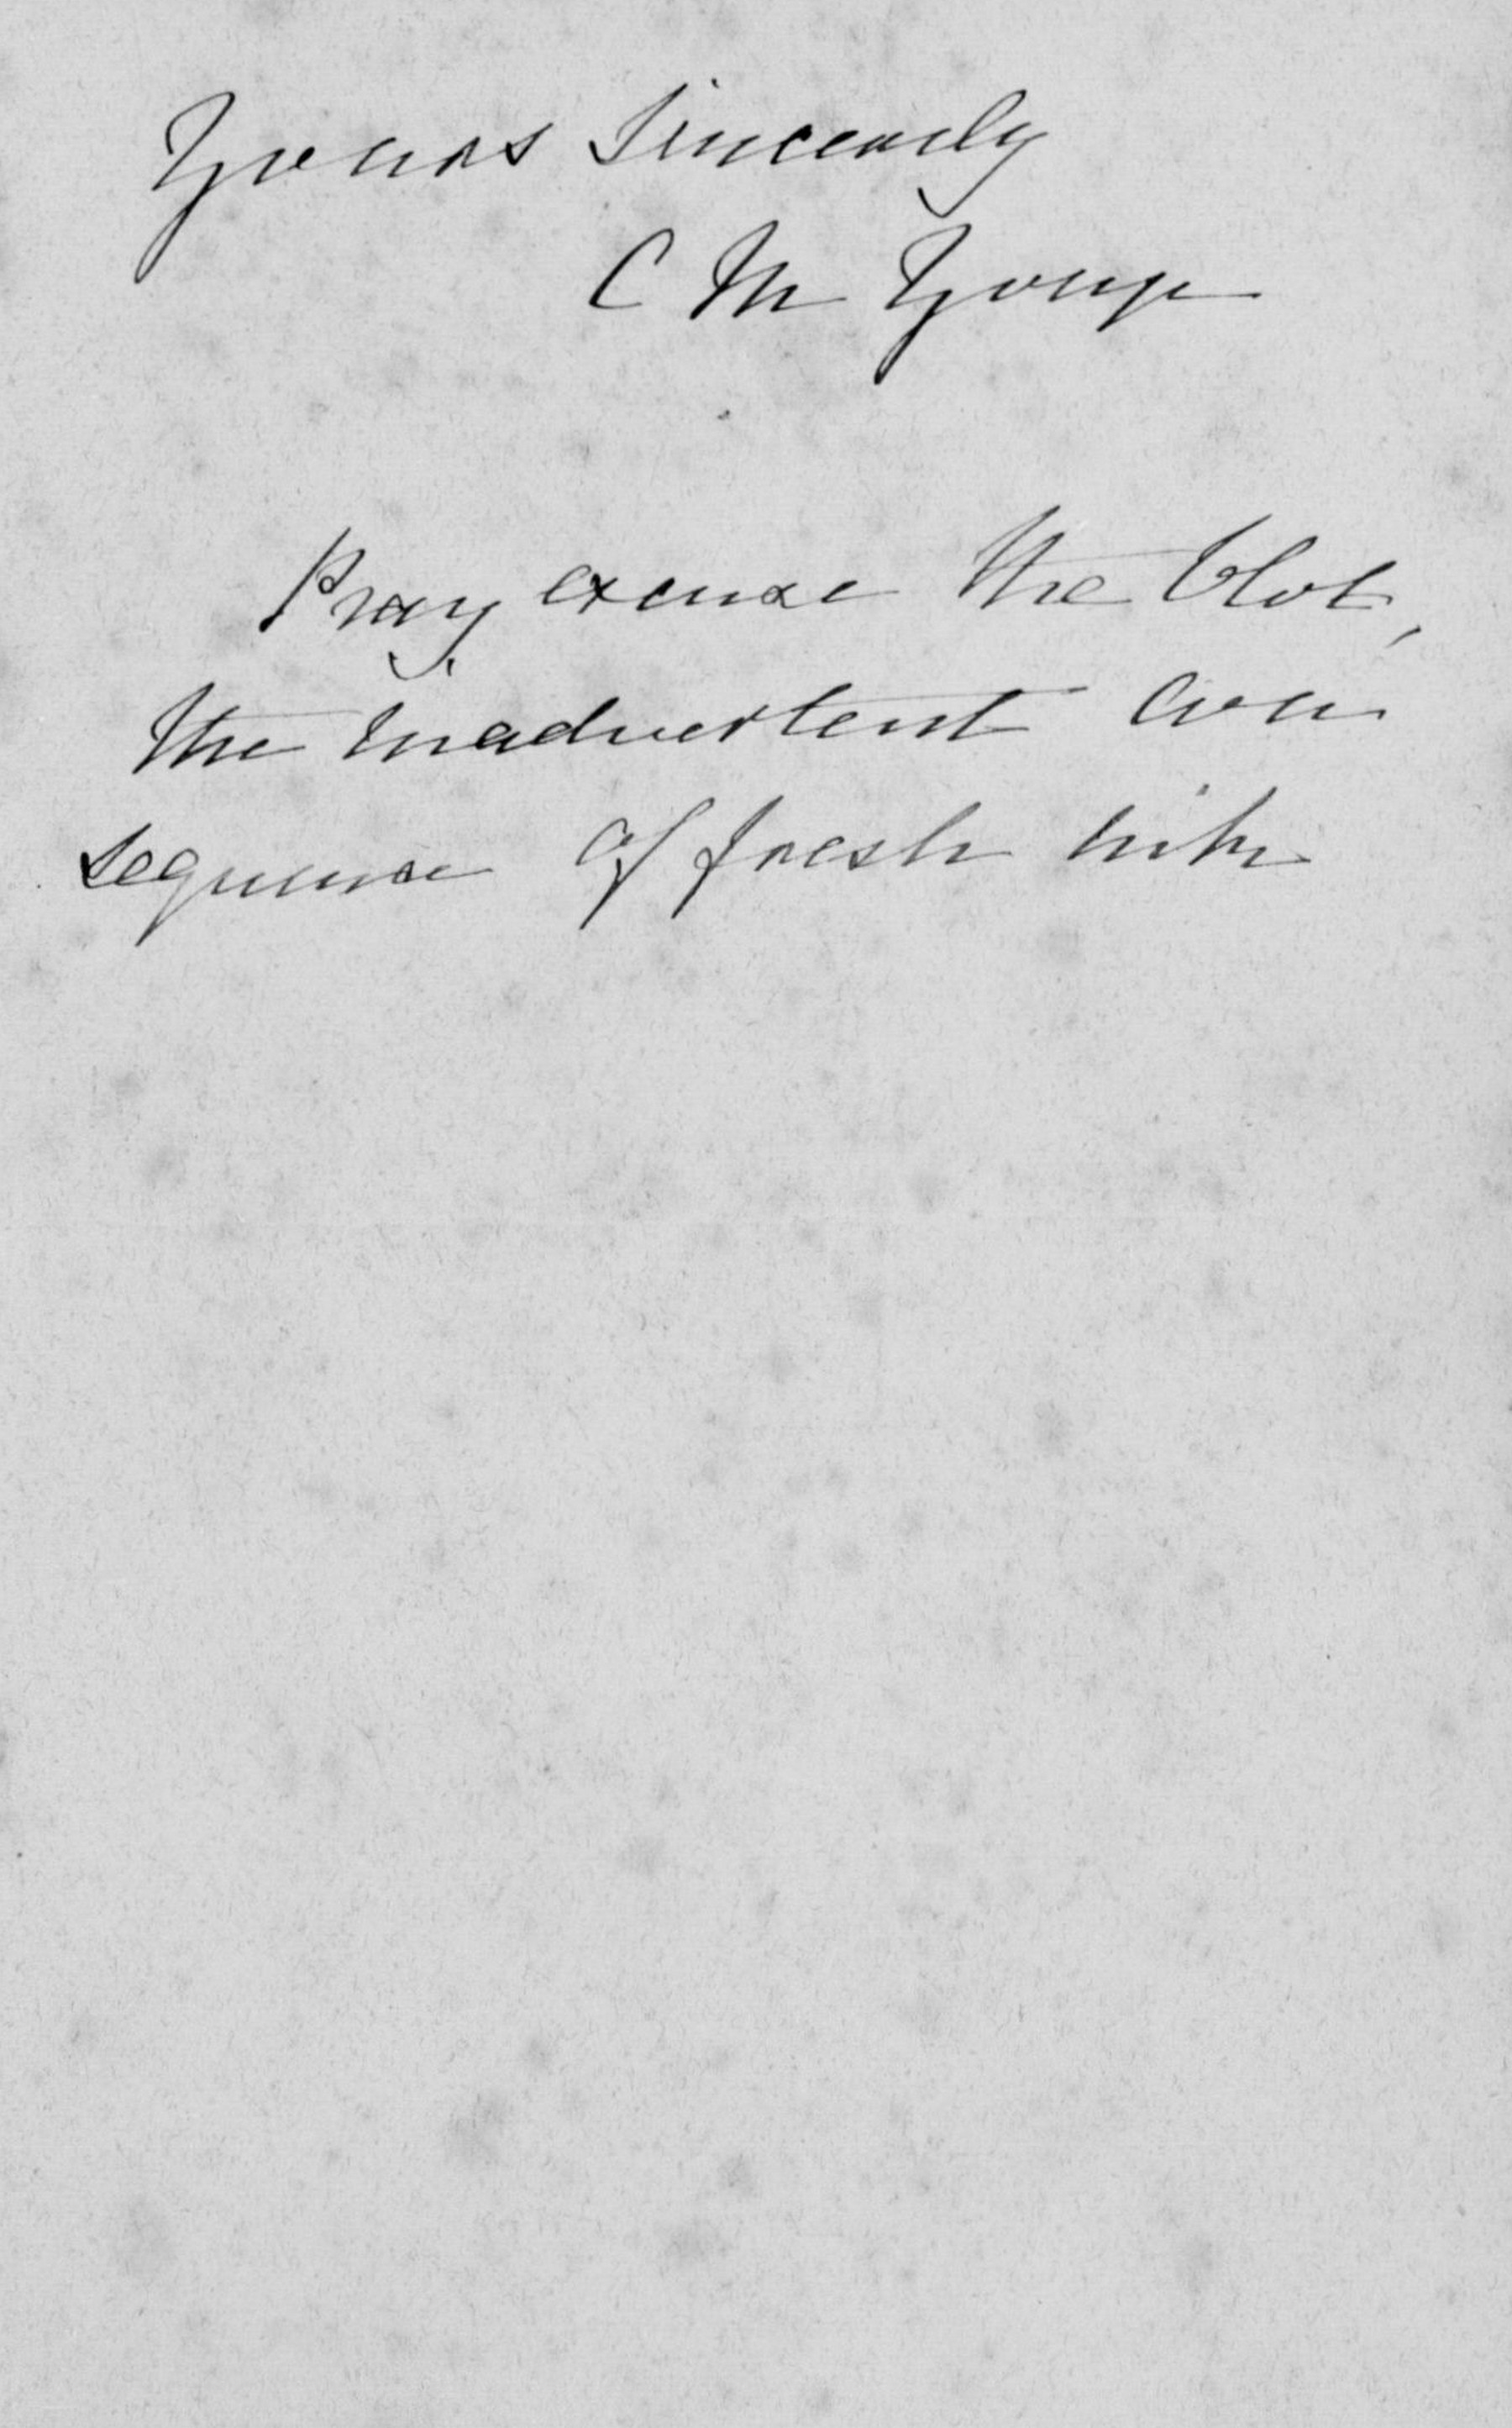 Yours sincerely
C M Yonge
Pray excuse the blot,
the inadvertent con
sequence of fresh ink